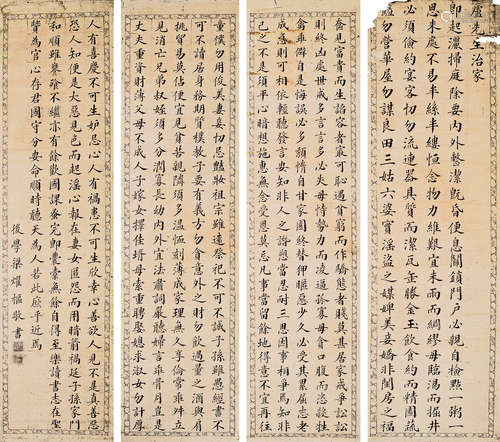 盧先生治家
即起灑掃庭除要內外整潔既昏便息關鎖門戶必親自檢點一粥一
思來處不易半絲半縷恒念物力維艱宜未雨而綢繆毋臨渴而掘井
必須儉約宴客切勿流連器具質而潔瓦缶勝金玉飲食約而精園蔬
勿營華屋勿謀良田三姑六婆實淫盜之媒婢美妾嬌非閨房之福
奩見富貴而生諂容者最可恥遇貧窮而作驕態者賤莫甚居家戒爭訟訟
則終凶處世戒多言言多必失毋恃勢力而凌逼孤寡毋貪口腹而恣殺牲
禽乖僻自是悔誤必多頹惰自甘家園終替狎暱惡少久必受其累屈志老
成急則可相依輕聽發言安知非人之譖愬當忍耐三思因事相爭焉知非
己之不是須平心暗想施惠無念受恩莫忘凡事當留餘地得意不宜再往
童僕勿用俊美妻妾切忌艷妝祖宗雖遠祭祀不可不誠子孫雖愚經書不
可不讀居身務期質樸教子要有義方勿貪意外之財勿飲過量之酒與肩
挑貿易莫佔便宜見貧苦親鄰須多溫恤刻薄成家理無久享倫常乖舛立
見消亡兄弟叔姪須多分潤寡長幼內外宜法肅詞嚴聽婦言乖骨肉豈是
丈夫重資財薄父母不成人子嫁女擇佳壻毋索重聘娶媳求淑女勿計厚
人有喜慶不可生妒忌心人有禍患不可生欣幸心善欲人見不是真善惡
恐人知便是大惡見色而起淫心報在妻女匿怨而用暗箭禍延子孫家門
和順雖饔飧不繼亦有餘歡國課蚤完即囊橐無餘自得至樂讀書志在聖
賢為官心存君國守分安命順時聽天為人若此庶乎近焉
後學梁燿樞敬書